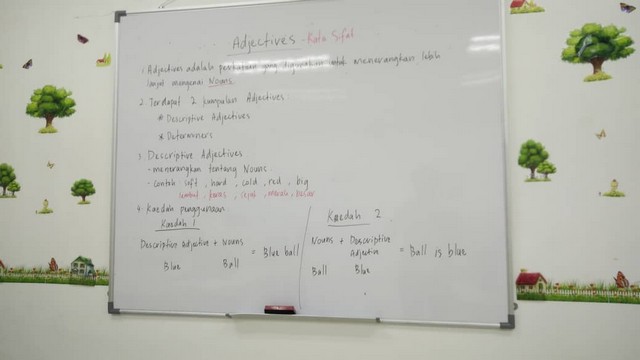 Adjectives - Kata Sifat
1. Adjectives adalah perkataan yang digunakan untuk menerangkan lebih
lanjut mengenai Nouns.
2. Terdapat 2 kumpulan Adjectives
* Descriptive Adjectives
* Determiners
3. Descriptive Adjectives
- menerangkan tentang Nouns.
- contoh soft, hard, cold, red, big
lembut, keras, sejuk, merah, besar
4. Kaedah penggunaan.
Kaedah 1
Descriptive adjective + Nouns
Blue Ball = Blue ball
Kaedah 2
Nouns + Descriptive
Adjective = Ball is blue
Ball Blue